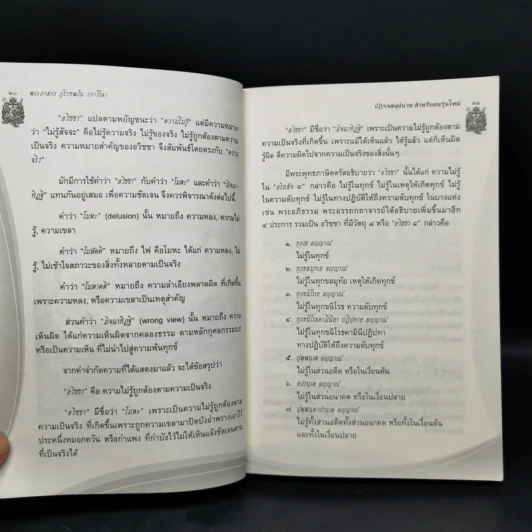 ๒๐ พระภาสกร ภูริวฑฺฒโน (ภาวิไล)
"อวิชชา" แปลตามพยัญชนะว่า "ความไม่รู้" แต่มีความหมาย
ว่า "ไม่รู้สัจจะ" คือไม่รู้ความจริง ไม่รู้ของจริง ไม่รู้ถูกต้องตามความ
เป็นจริง ความหมายสำคัญของอวิชชา จึงสัมพันธ์โดยตรงกับ "ความ
จริง"
มักมีการใช้คำว่า "อวิชชา" กับคำว่า "โมหะ" และคำว่า "มิจฉา
ทิฏฐิ" แทนกันอยู่เสมอ เพื่อความชัดเจน จึงควรพิจารณาดังต่อไปนี้
คำว่า "โมหะ" (delusion) นั้น หมายถึง ความหลง, ความไม่
รู้, ความเขลา
คำว่า "โมหัคคิ" หมายถึง ไฟ คือโมหะ ได้แก่ ความหลง, ไม่
รู้, ไม่เข้าใจสภาวะของสิ่งทั้งหลายตามเป็นจริง
คำว่า "โมหาคติ" หมายถึง ความลำเอียงพลาดผิด ที่เกิดขึ้น
เพราะความหลง, หรือความเขลาเป็นเหตุสำคัญ
ส่วนคำว่า "มิจฉาทิฏฐิ" (wrong view) นั้น หมายถึง ความ
เห็นผิด ได้แก่ความเห็นผิดจากคลองธรรม ตามหลักกุศลกรรมบถ
หรือเป็นความเห็น ที่ไม่นำไปสู่ความพ้นทุกข์
จากคำจำกัดความที่ได้แสดงมาแล้ว จะได้ข้อสรุปว่า
"อวิชชา" คือ ความไม่รู้ถูกต้องตามความเป็นจริง
"อวิชชา" มีชื่อว่า "โมหะ" เพราะเป็นความไม่รู้ถูกต้องตาม
ความเป็นจริง ที่เกิดขึ้นเพราะถูกความเขลามาปิดบังอำพรางเอาไว้
ประหนึ่งหมอกควัน หรือกำแพง ที่กำบังไว้ไม่ให้เห็นแจ้งชัดเจนตาม
ที่เป็นจริงได้
ปฏิจจสมุปบาท สำหรับคนรุ่นใหม่ ๒๑
"อวิชชา" มีชื่อว่า "มิจฉาทิฏฐิ" เพราะเป็นความไม่รู้ถูกต้องตาม
ความเป็นจริงที่เกิดขึ้น เพราะแม้ได้เห็นแล้ว ได้รู้แล้ว แต่ก็เห็นผิด
รู้ผิด ตีความผิดไปจากความเป็นจริงของสิ่งนั้นๆ
มีพระพุทธภาษิตตรัสอธิบายว่า "อวิชชา" นั้นได้แก่ ความไม่รู้
ใน "อริยสัจ ๔" กล่าวคือ ไม่รู้ในทุกข์ ไม่รู้ในเหตุให้เกิดทุกข์ ไม่รู้
ในความดับทุกข์ ไม่รู้ในทางปฏิบัติให้ถึงความดับทุกข์ ในบางแห่ง
เช่น พระอภิธรรม พระอรรถกถาจารย์ได้อธิบายเพิ่มขึ้นมาอีก
๔ ประการ รวมเป็น อวิชชา ที่มีวัตถุ ๘ หรือ "อวิชชา ๘" กล่าวคือ
๑. ทุกฺเข อญฺญาณํ
ไม่รู้ในทุกข์
๒. ทุกฺขสมุทเย อญฺญาณํ
ไม่รู้ในทุกขสมุทัย เหตุให้เกิดทุกข์
๓. ทุกฺขนิโรเธ อญฺญาณํ
ไม่รู้ในทุกขนิโรธ ความดับทุกข์
๔. ทุกฺขนิโรธคามินิยา ปฏิปทาย อญฺญาณํ
ไม่รู้ในทุกขนิโรธคามินีปฏิปทา
ทางปฏิบัติให้ถึงความดับทุกข์
๕. ปุพฺพนฺเต อญฺญาณํ
ไม่รู้ในส่วนอดีต หรือในเงื่อนต้น
๖. อปรนฺเต อญฺญาณํ
ไม่รู้ในส่วนอนาคต หรือในเงื่อนปลาย
๗. ปุพฺพนฺตาปรนฺเต อญฺญาณํ
ไม่รู้ทั้งส่วนอดีตทั้งส่วนอนาคต หรือทั้งในเงื่อนต้น
และทั้งในเงื่อนปลาย